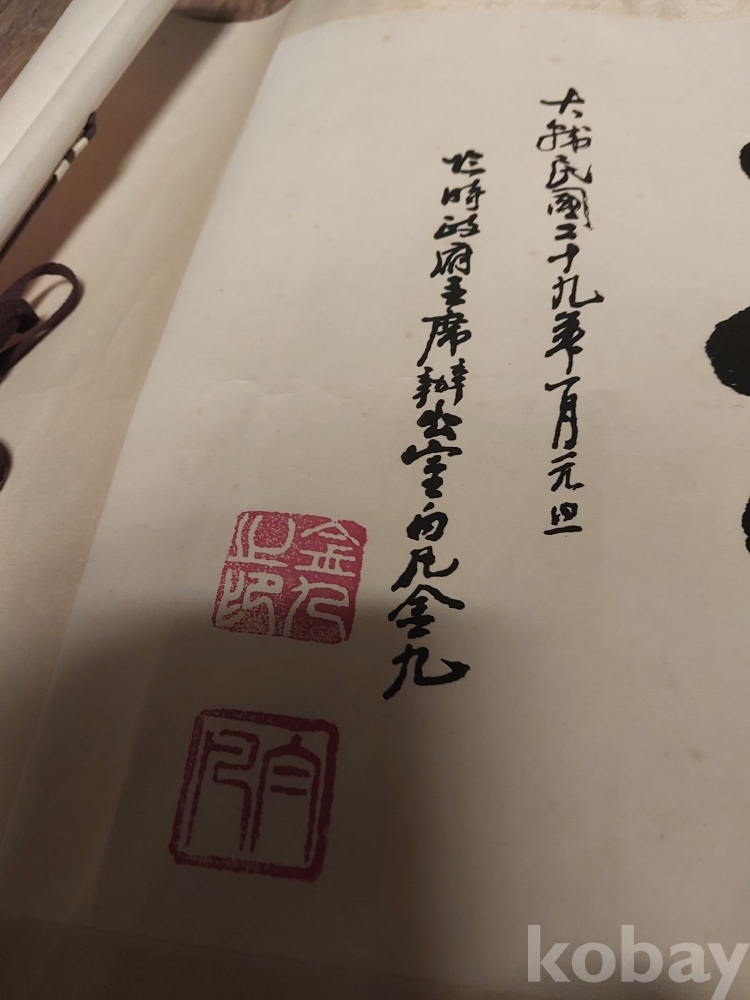 大韓民國二十九年一月元旦
臨時政府主席辦公室白凡金九
金九之印
白凡
kobay